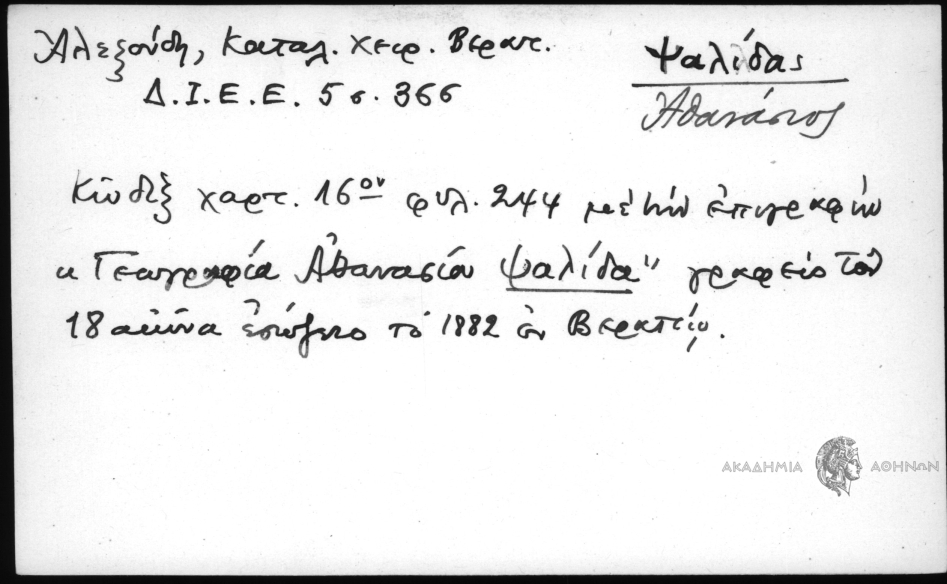 Ἀλεξούδη, Καταλ. χειρ. Βερατ.
Δ.Ι.Ε.Ε. 5 σ. 366
Ψαλίδας
Ἀθανάσιος
Κῶδιξ χαρτ. 16ον φυλ. 244 μὲ τὴν ἐπιγραφὴν
« Γεωγραφία Ἀθανασίου Ψαλίδα" γραφεῖσ τοῦ
18 αἰῶνα ἐσώζετο τὸ 1882 ἐν Βερατίῳ.
ΑΚΑΔΗΜΙΑ ΑΘΗΝΩΝ